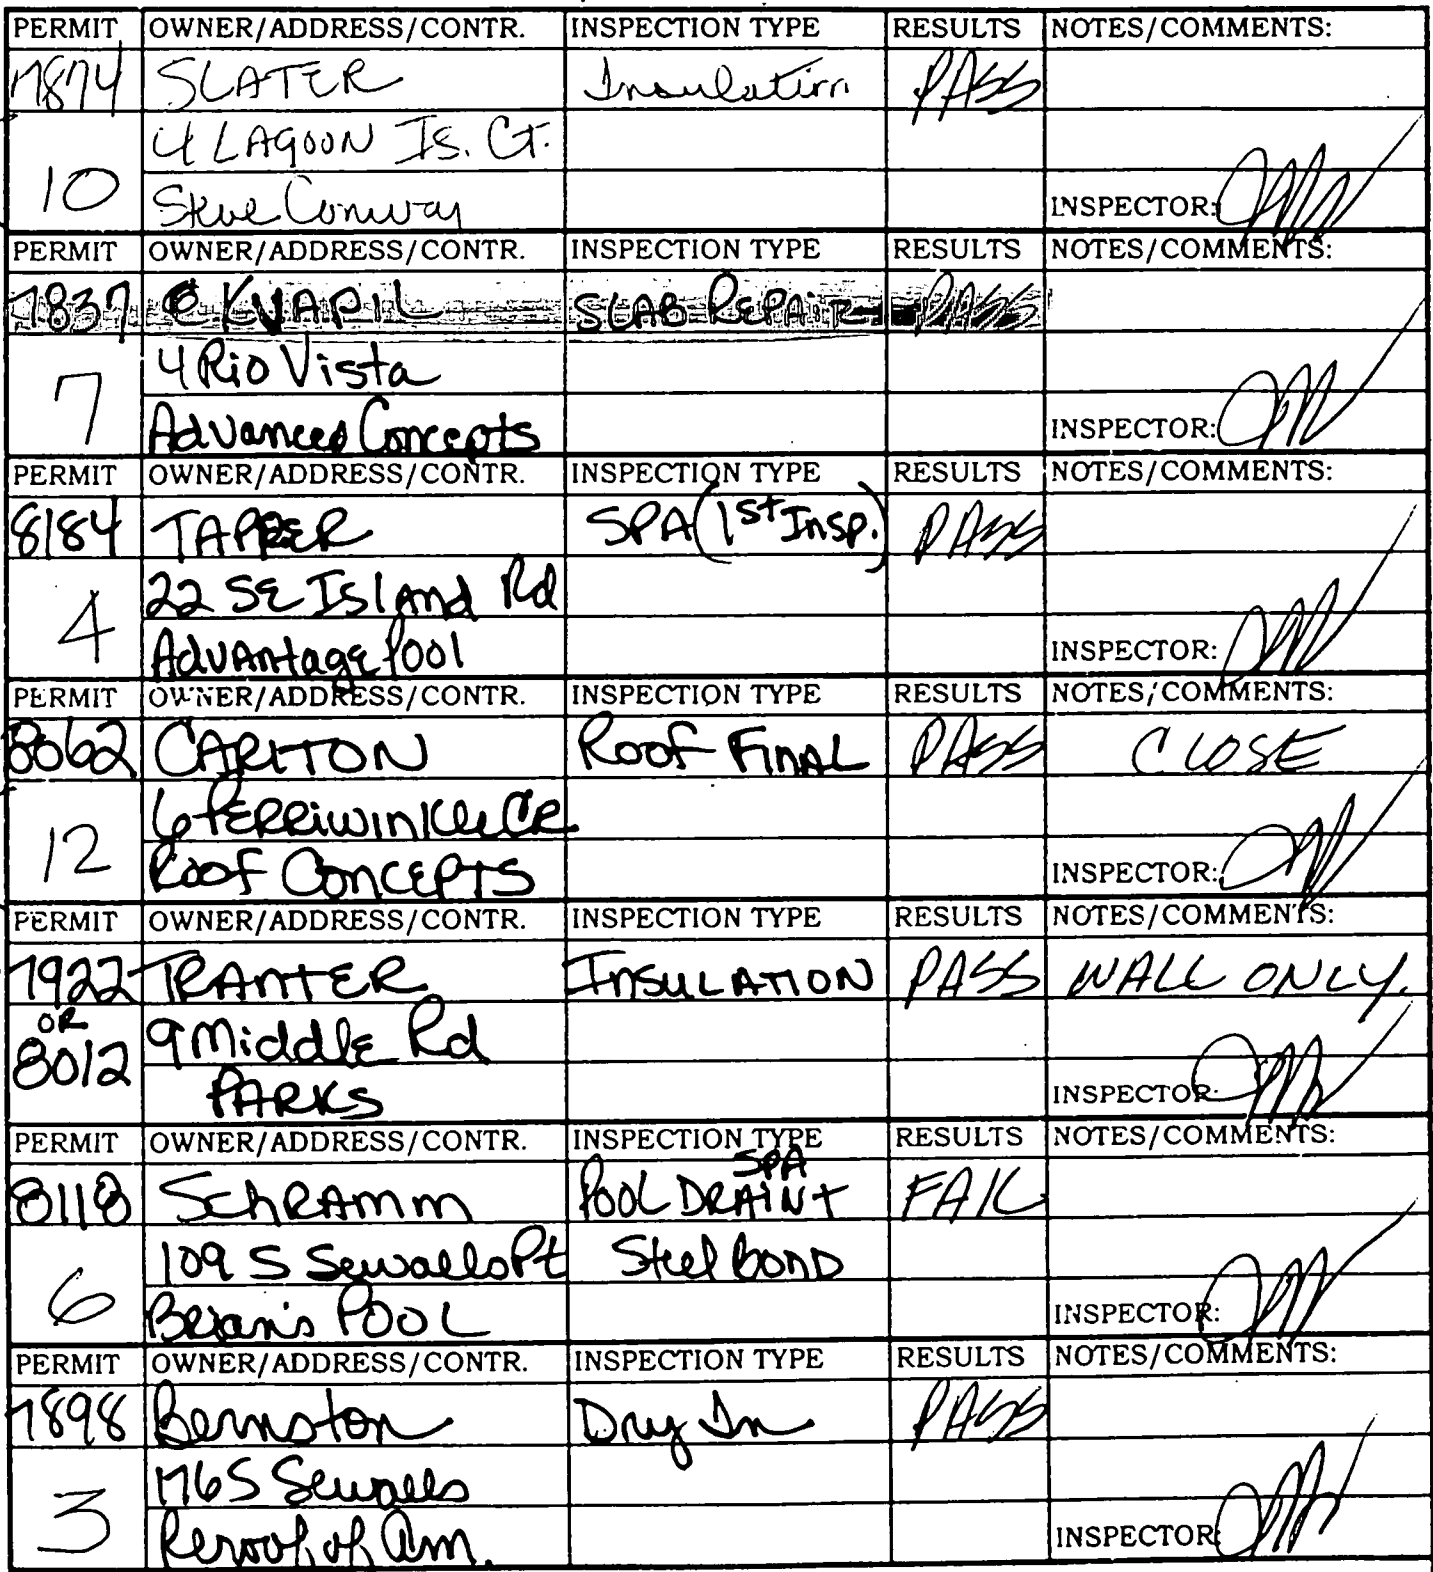 PERMIT OWNER/ADDRESS/CONTR. INSPECTION TYPE RESULTS NOTES/COMMENTS:
7874 SLATER Insulation PASS
4 LAGOON IS. CT.
10 Steve Conway INSPECTOR:
PERMIT OWNER/ADDRESS/CONTR. INSPECTION TYPE RESULTS NOTES/COMMENTS:
7837 KVAPIL SLAB REPAIR PASS
4 Rio Vista
7 Advanced Concepts INSPECTOR:
PERMIT OWNER/ADDRESS/CONTR. INSPECTION TYPE RESULTS NOTES/COMMENTS:
8184 TAPPER SPA (1st Insp.) PASS
22 SE ISLAnd Rd
4 AdvAntage Pool INSPECTOR:
PERMIT OWNER/ADDRESS/CONTR. INSPECTION TYPE RESULTS NOTES/COMMENTS:
8062 CARLTON Roof FINAL PASS CLOSE
6 PERRiwinkle CR
12 Roof CONCEPTS INSPECTOR:
PERMIT OWNER/ADDRESS/CONTR. INSPECTION TYPE RESULTS NOTES/COMMENTS:
7922 TRANTER INSULATION PASS WALL ONLY.
OR 9 Middle Rd
8012 PARKS INSPECTOR:
PERMIT OWNER/ADDRESS/CONTR. INSPECTION TYPE RESULTS NOTES/COMMENTS:
SPA
8118 SchRAmm POOL DRAIN + FAIL
109 S Sewalls Pt Steel BOND
6 Brian's POOL INSPECTOR:
PERMIT OWNER/ADDRESS/CONTR. INSPECTION TYPE RESULTS NOTES/COMMENTS:
7898 Bernston Dry In PASS
176 S Sewalls
3 Reroof of Am. INSPECTOR: